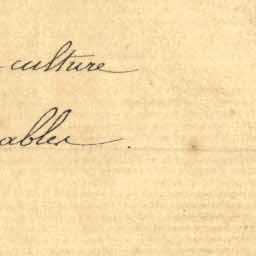 -culture
ables.